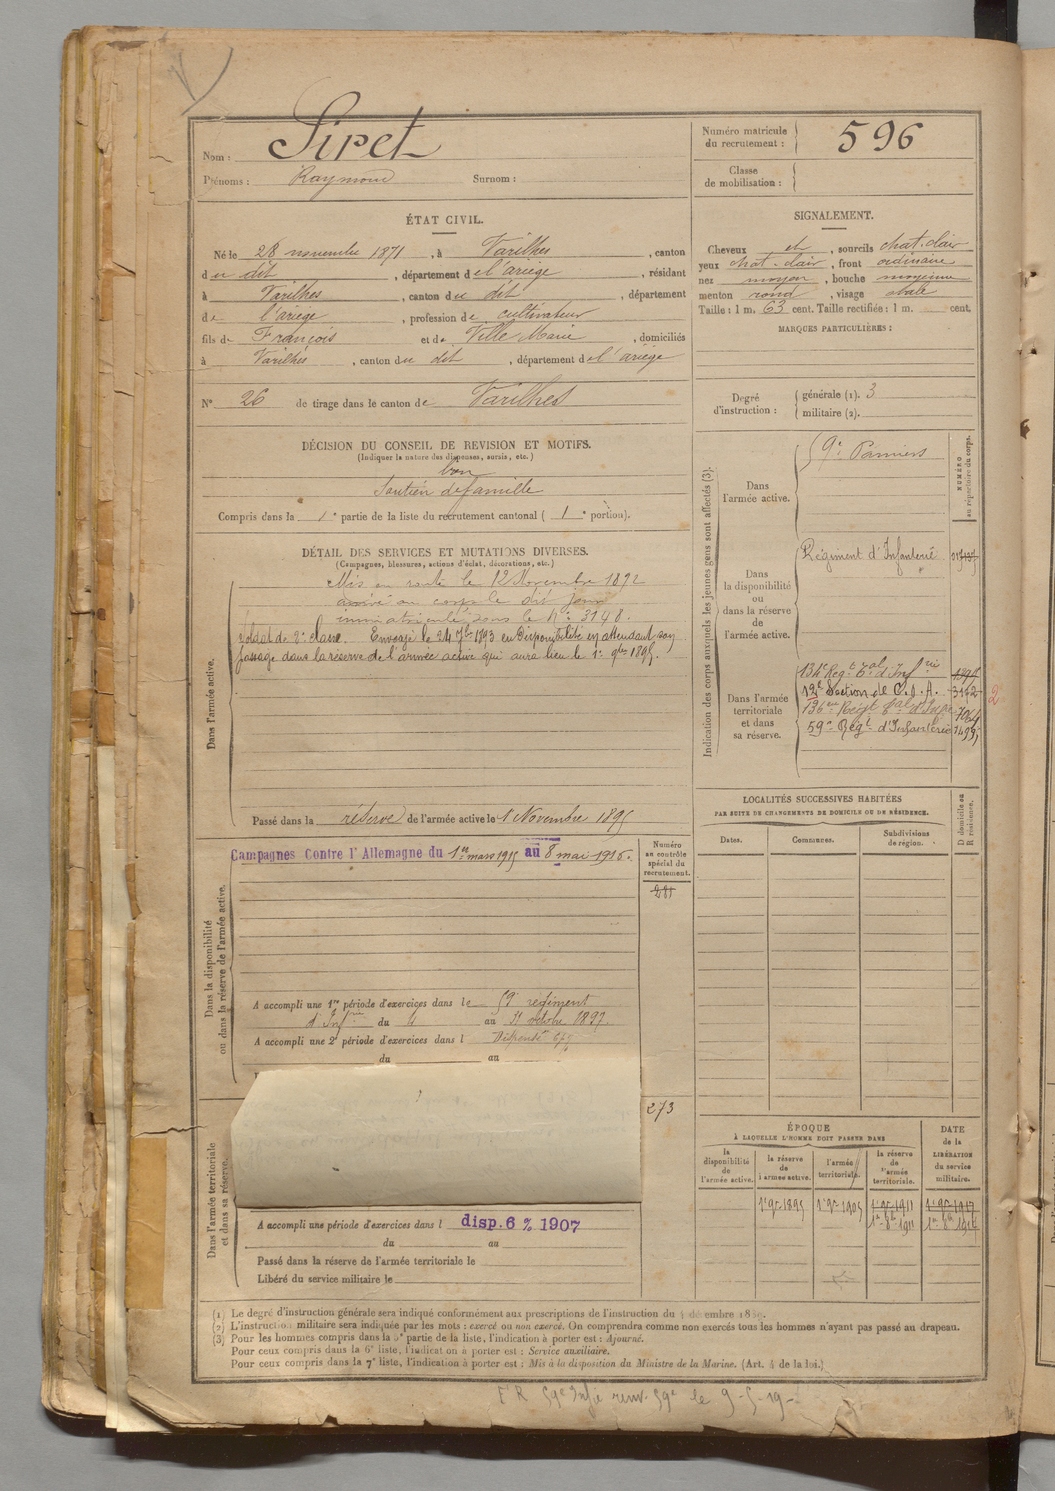 Nom : Siret
Prénoms : Raymond Surnom :
Numéro matricule
du recrutement : 596
Classe
de mobilisation :
ÉTAT CIVIL.
Né le 28 novembre 1871, à Varilhes, canton
du dit, département de l'ariège, résidant
à Varilhes, canton du dit, département
de l'ariège, profession de cultivateur
fils de François et de Ville Marie, domiciliés
à Varilhes, canton du dit, département de l'ariège
N° 26 de tirage dans le canton de Varilhes
SIGNALEMENT.
Cheveux et, sourcils chat. clair
yeux chat. clair, front ordinaire
nez moyen, bouche moyenne
menton rond, visage ovale
Taille : 1 m. 63 cent. Taille rectifiée : 1 m. cent.
MARQUES PARTICULIÈRES :
Degré
d'instruction :
générale (1). 3
militaire (2).
DÉCISION DU CONSEIL DE REVISION ET MOTIFS.
(Indiquer la nature des dispenses, sursis, etc.)
bon
Soutien de famille
Compris dans la 1e partie de la liste du recrutement cantonal ( 1e portion).
DÉTAIL DES SERVICES ET MUTATIONS DIVERSES.
(Campagnes, blessures, actions d'éclat, décorations, etc.)
Dans l'armée active.
Mis en route le 12 Novembre 1892
arrivé au corps le dit jour
immatriculé sous le n° 3148.
Soldat de 2e classe. Envoyé le 24 7bre 1893 en Disponibilité en attendant son
passage dans la réserve de l'armée active qui aura lieu le 1er 9bre 1895.
Passé dans la réserve de l'armée active le 1 Novembre 1895
Indication des corps auxquels les jeunes gens sont affectés (3).
Dans
l'armée active.
59e Pamiers
NUMÉRO
au répertoire du corps.
Dans
la disponibilité
ou
dans la réserve
de
l'armée active.
Régiment d'Infanterie
Dans l'armée
territoriale
et dans
sa réserve.
134e Régt tal d'Infrie
12e Section de C.O.A. 3162
136e Régt tal d'Infie
59e Régt d'Infanterie
2
LOCALITÉS SUCCESSIVES HABITÉES
PAR SUITE DE CHANGEMENTS DE DOMICILE OU DE RÉSIDENCE.
Dates.
Communes.
Subdivisions
de région.
D domicile ou
R résidence.
Dans la disponibilité
ou dans la réserve de l'armée active.
Campagnes Contre l'Allemagne du 1er mars 1915 au 8 mai 1916.
Numéro
au contrôle
spécial du
recrutement.
281
A accompli une 1re période d'exercices dans le 59e régiment
d'Infrie du 4 au 31 octobre 1897.
A accompli une 2e période d'exercices dans l
du au
273
Dans l'armée territoriale
et dans sa réserve.
A accompli une période d'exercices dans l disp. 6 % 1907
du au
Passé dans la réserve de l'armée territoriale le
Libéré du service militaire le
ÉPOQUE
À LAQUELLE L'HOMME DOIT PASSER DANS
DATE
de la
LIBÉRATION
du service
militaire.
la
disponibilité
de
l'armée active.
la réserve
de
l'armée active.
l'armée
territoriale.
la réserve
de
l'armée
territoriale.
1er 9bre 1895 1er 9bre 1905 1er 9bre 1911 1er 9bre 1917
(1) Le degré d'instruction générale sera indiqué conformément aux prescriptions de l'instruction du
(2) L'instruction militaire sera indiquée par les mots : exercé ou non exercé. On comprendra comme non exercés tous les hommes n'ayant pas passé au drapeau.
(3) Pour les hommes compris dans la 5e partie de la liste, l'indication à porter est : Ajourné.
Pour ceux compris dans la 6e liste, l'indication à porter est : Service auxiliaire.
Pour ceux compris dans la 7e liste, l'indication à porter est : Mis à la disposition du Ministre de la Marine. (Art. 4 de la loi.)
59e Infie renv. 59e le 9-5-19